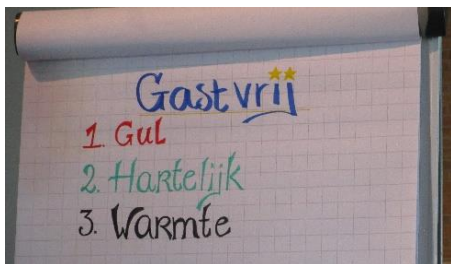 Gastvrij
1. Gul
2. Hartelijk
3. Warmte